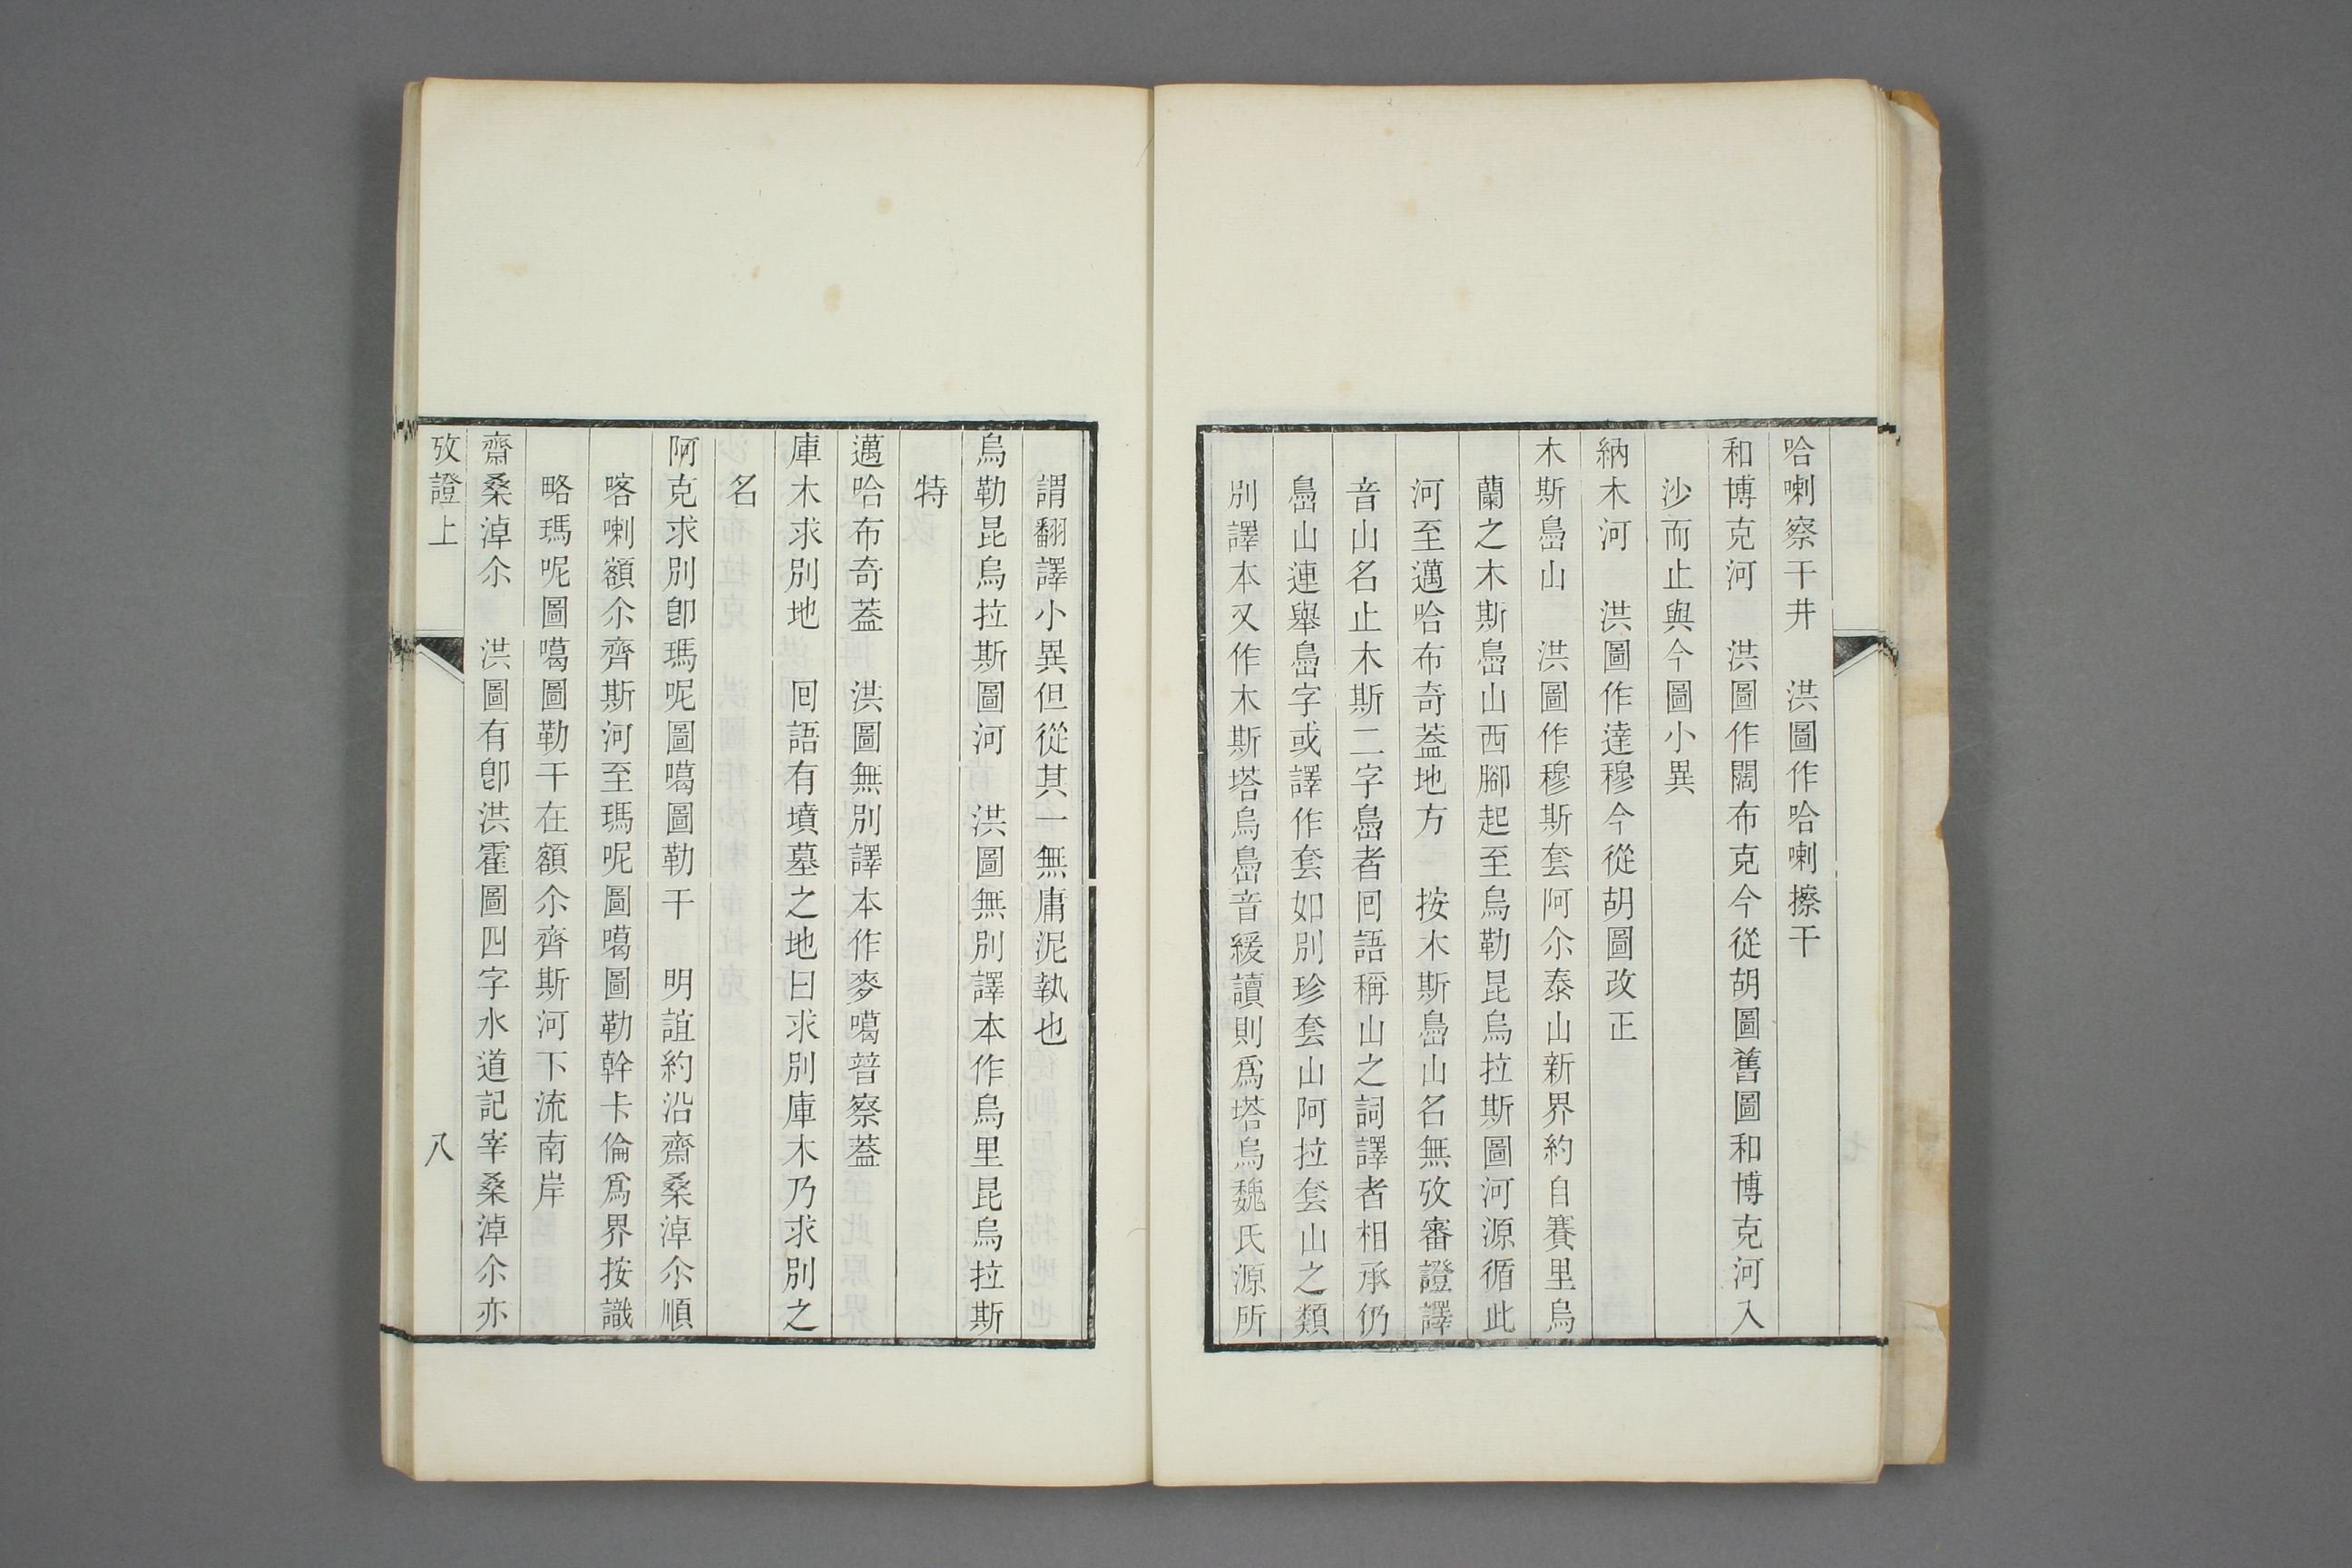 哈喇察干井　洪圖作哈喇擦干
和博克河　洪圖作闊布克今從胡圖舊圖和博克河入
沙而止與今圖小異
納木河　洪圖作達穆今從胡圖改正
木斯島山　洪圖作穆斯套阿尒泰山新界約自賽里烏
蘭之木斯島山西腳起至烏勒昆烏拉斯圖河源循此
河至邁哈布奇蓋地方　按木斯島山名無攷審證譯
音山名止木斯二字島者回語稱山之詞譯者相承仍
島山連舉島字或譯作套如別珍套山阿拉套山之類
別譯本又作木斯塔烏島音緩讀則爲塔烏魏氏源所
謂翻譯小異但從其一無庸泥執也
烏勒昆烏拉斯圖河　洪圖無別譯本作烏里昆烏拉斯
特
邁哈布奇蓋　洪圖無別譯本作麥噶普察蓋
庫木求別地　回語有墳墓之地曰求別庫木乃求別之
名
阿克求別卽瑪呢圖噶圖勒干　明誼約沿齋桑淖尒順
喀喇額尒齊斯河至瑪呢圖噶圖勒幹卡倫爲界按識
略瑪呢圖噶圖勒干在額尒齊斯河下流南岸
齋桑淖尒　洪圖有卽洪霍圖四字水道記宰桑淖尒亦
攷證上　八